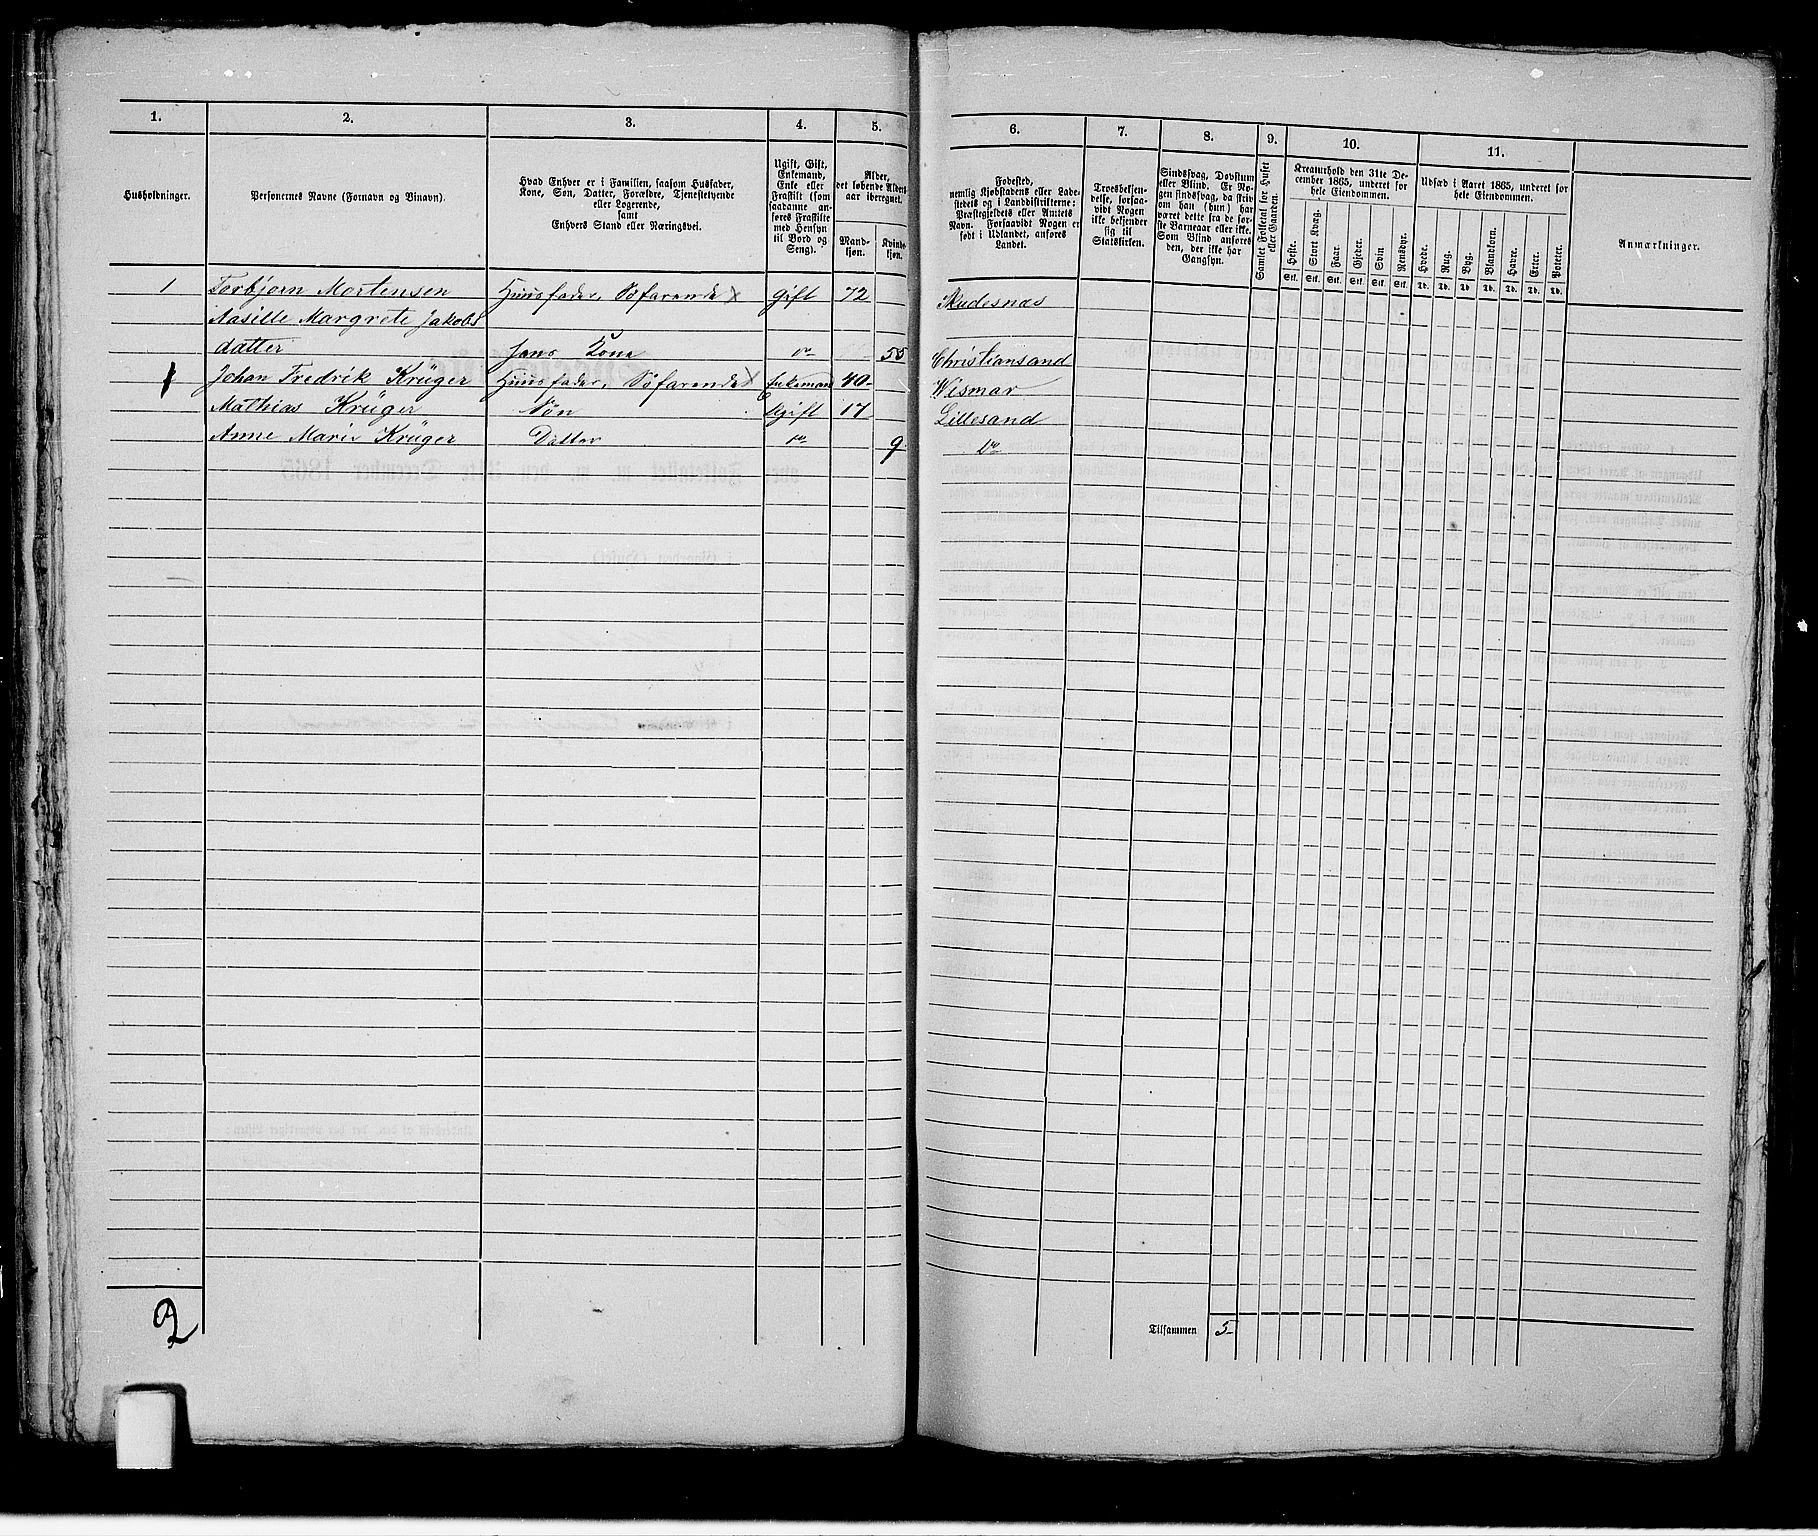 1. 2. 3. 4. 5. 6. 7. 8. 9. 10. 11.
Husholdninger.
Personernes Navne (Fornavn og Binavn).
Hvad Enhver er i Familien, saasom Husfader,
Kone, Søn, Datter, Forældre, Tjenestetyende
eller Logerende,
samt
Enhvers Stand eller Næringsvei.
Ugift, Gift,
Enkemand,
Enke eller
Fraskilt (som
saadanne an-
føres Fraskilte
med Hensyn
til Bord og
Seng).
Alder,
det løbende Alders-
aar iberegnet.
Mand-
kjøn.
Kvinde-
kjøn.
Fødested,
nemlig Kjøbstadens eller Lade-
stedets og i Landdistrikterne:
Præstegjeldets eller Amtets
Navn. Forsaavidt Nogen er
født i Udlandet, anføres
Landet.
Troesbekjen-
delse, forsaa-
vidt Nogen
ikke bekjender
sig til
Statskirken.
Sindssvag, Døvstum
eller Blind. Er No-
gen sindssvag, da skriv
om han (hun) har
været dette fra de før-
ste Barneaar eller ikke.
Som Blind anføres
den, der ikke har
Gangsyn.
Samlet Folketal for Huset
eller Gaarden.
Kreaturhold den 31te De-
cember 1865, underet for
hele Eiendommen.
Heste. Stort Kvæg. Faar. Gjeder. Svin Rensdyr.
Stk. Stk. Stk. Stk. Stk. Stk.
Udsæd i Aaret 1865, underet for
hele Eiendommen.
Hvede. Rug. Byg. Blankorn. Havre. Erter. Poteter.
Td. Td. Td. Td. Td. Td. Td.
Anmærkninger.
1 Torbjorn Mortensen Huusfader, Söfarende x Gift 72 Skudesnæs
Aasille Margrete Jakobs
datter Hans Kone do 55 Christiansand
1 Johan Fredrik Krüger Huusfader, Söfarende x Enkeman 40 Wismar
Mathias Krüger Sön Ugift 17 Lillesand
Anne Marie Krüger Datter do 9 do
2
Tilsammen 5